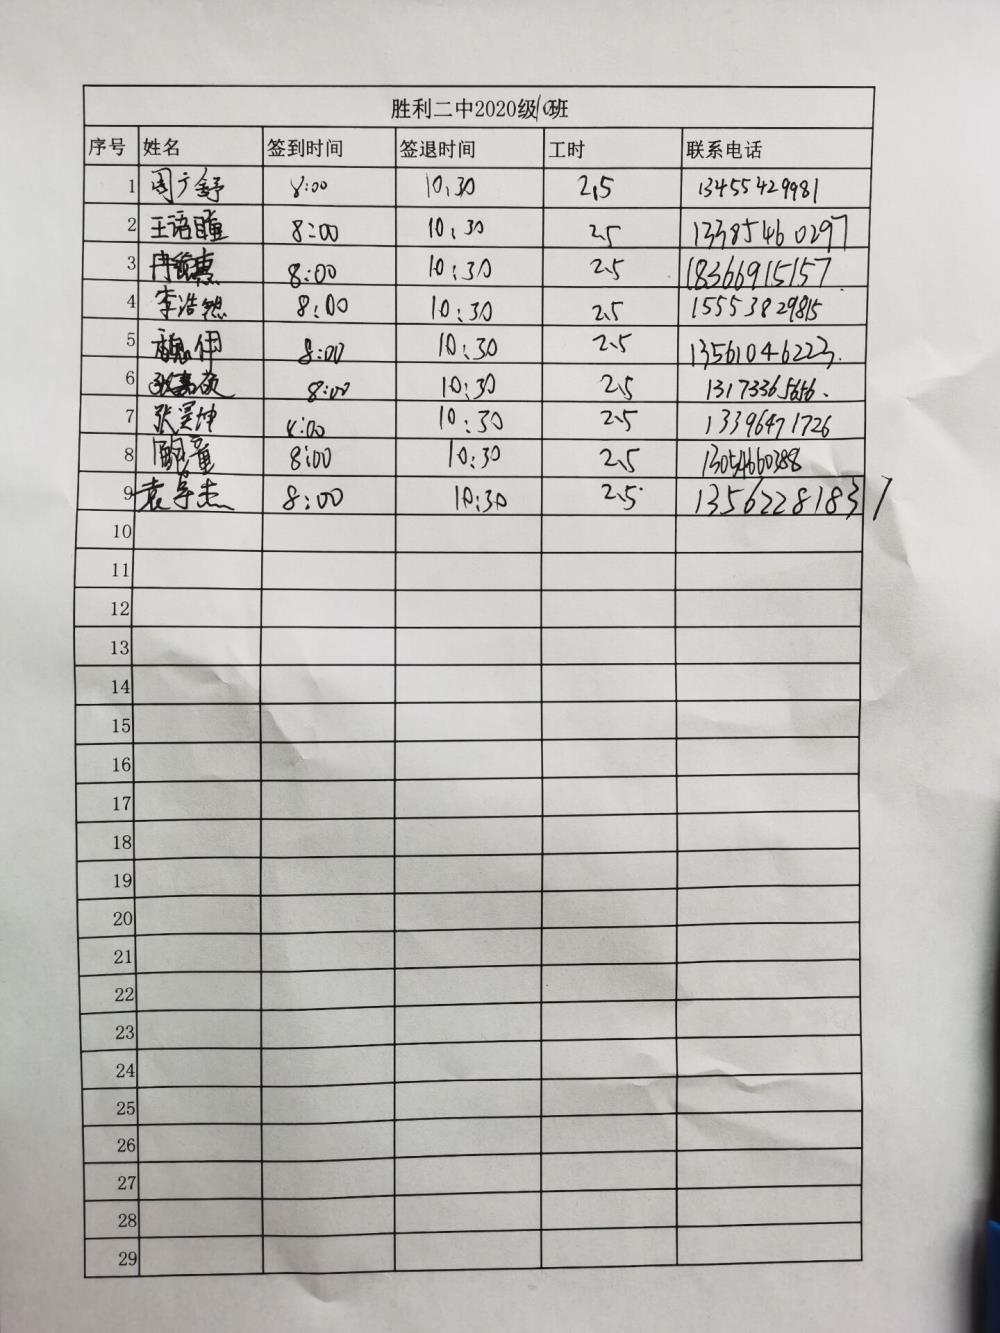 胜利二中2020级10班
序号 姓名 签到时间 签退时间 工时 联系电话
1 周广舒 8:00 10:30 2.5 13455429981
2 王语瞳 8:00 10:30 2.5 13385460297
3 冉 惠 8:00 10:30 2.5 18366915157
4 李浩然 8:00 10:30 2.5 15553829815
5 8:00 10:30 2.5 13561046223
6 张嘉 8:00 10:30 2.5 13173365656
7 张昊坤 8:00 10:30 2.5 13396471726
8 8:00 10:30 2.5 13054660388
9 袁宇杰 8:00 10:30 2.5 13562281837
10
11
12
13
14
15
16
17
18
19
20
21
22
23
24
25
26
27
28
29